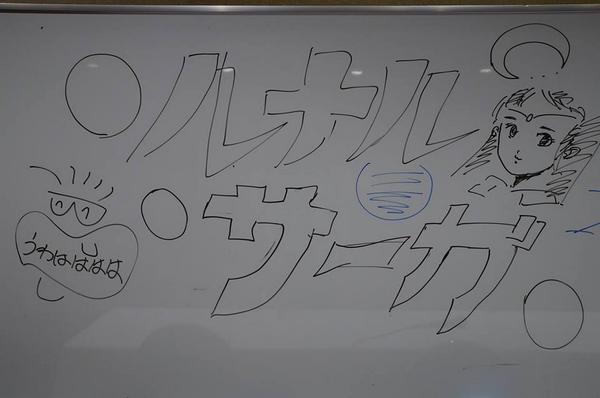 ルナル
サーガ
うわはははは